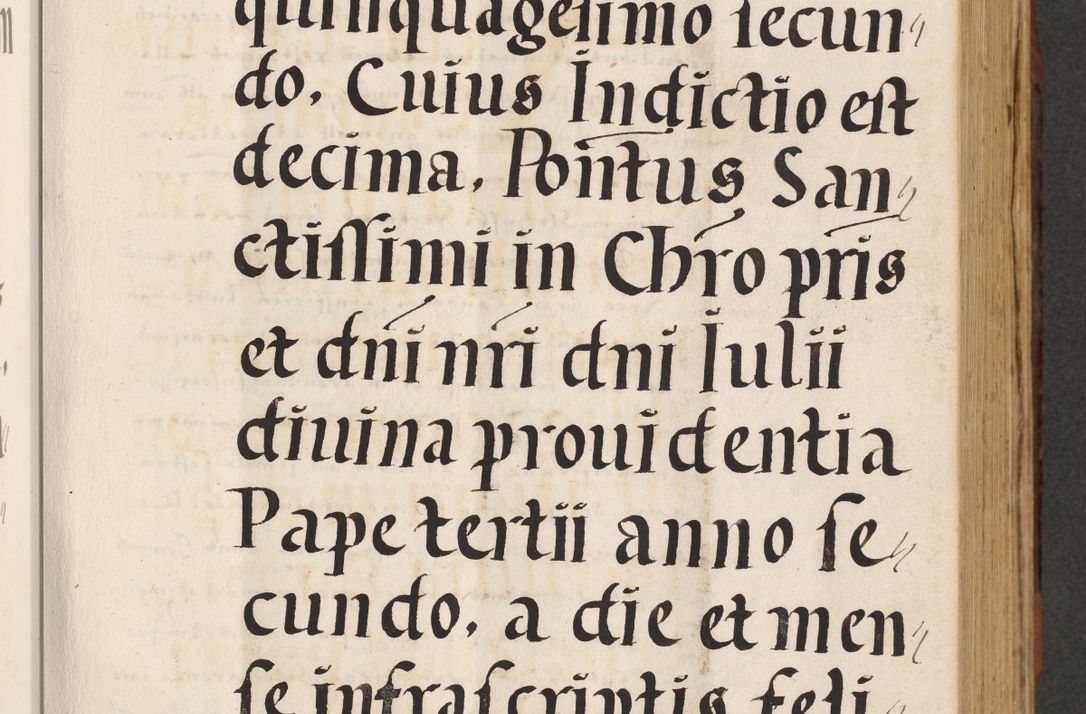 quinquagesimo secun⸗
do. Cuius Indictio est
decima. Pontus San⸗
ctissimi in Chro pris
et dni nri dni Iulii
diuina prouidentia
Pape tertii anno se⸗
cundo. a die et men⸗
se infrascriptis feli⸗